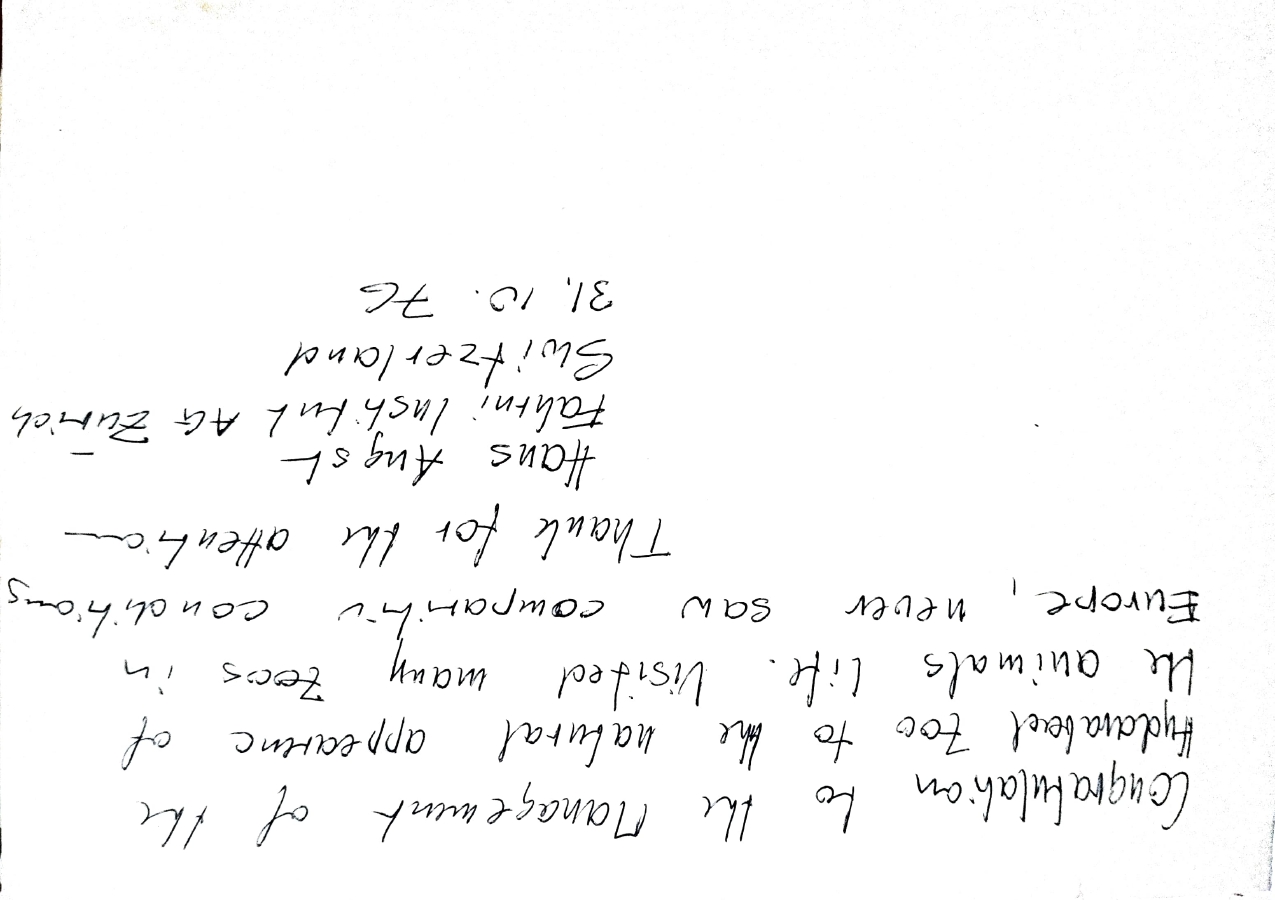 Congratulation to the Management of the
Hydarabad Zoo to the natural appearenc of
the animals life. Visited many Zoos in
Europe, never saw comparitiv conditions
Thank for the attention
Hans Angst
Fahrni Institut AG Zürich
Switzerland
31. 10. 76